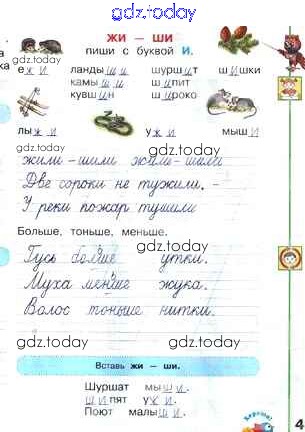 gdz.today
ЖИ – ШИ
пиши с буквой И.
ежи ландыши шуршит шишки
камыши шипит
кувшин широко
лыжи ужи мыши
жили – шили жили – шили
Две сороки не тужили. –
У реки пожар тушили
gdz.today
Больше, тоньше, меньше.
gdz.today
Гусь больше утки.
Муха меньше жука.
Волос тоньше нитки.
gdz.today gdz.today
Вставь жи – ши.
Шуршат мыши.
Шипят ужи.
Поют малыши.
Хорошо!
4